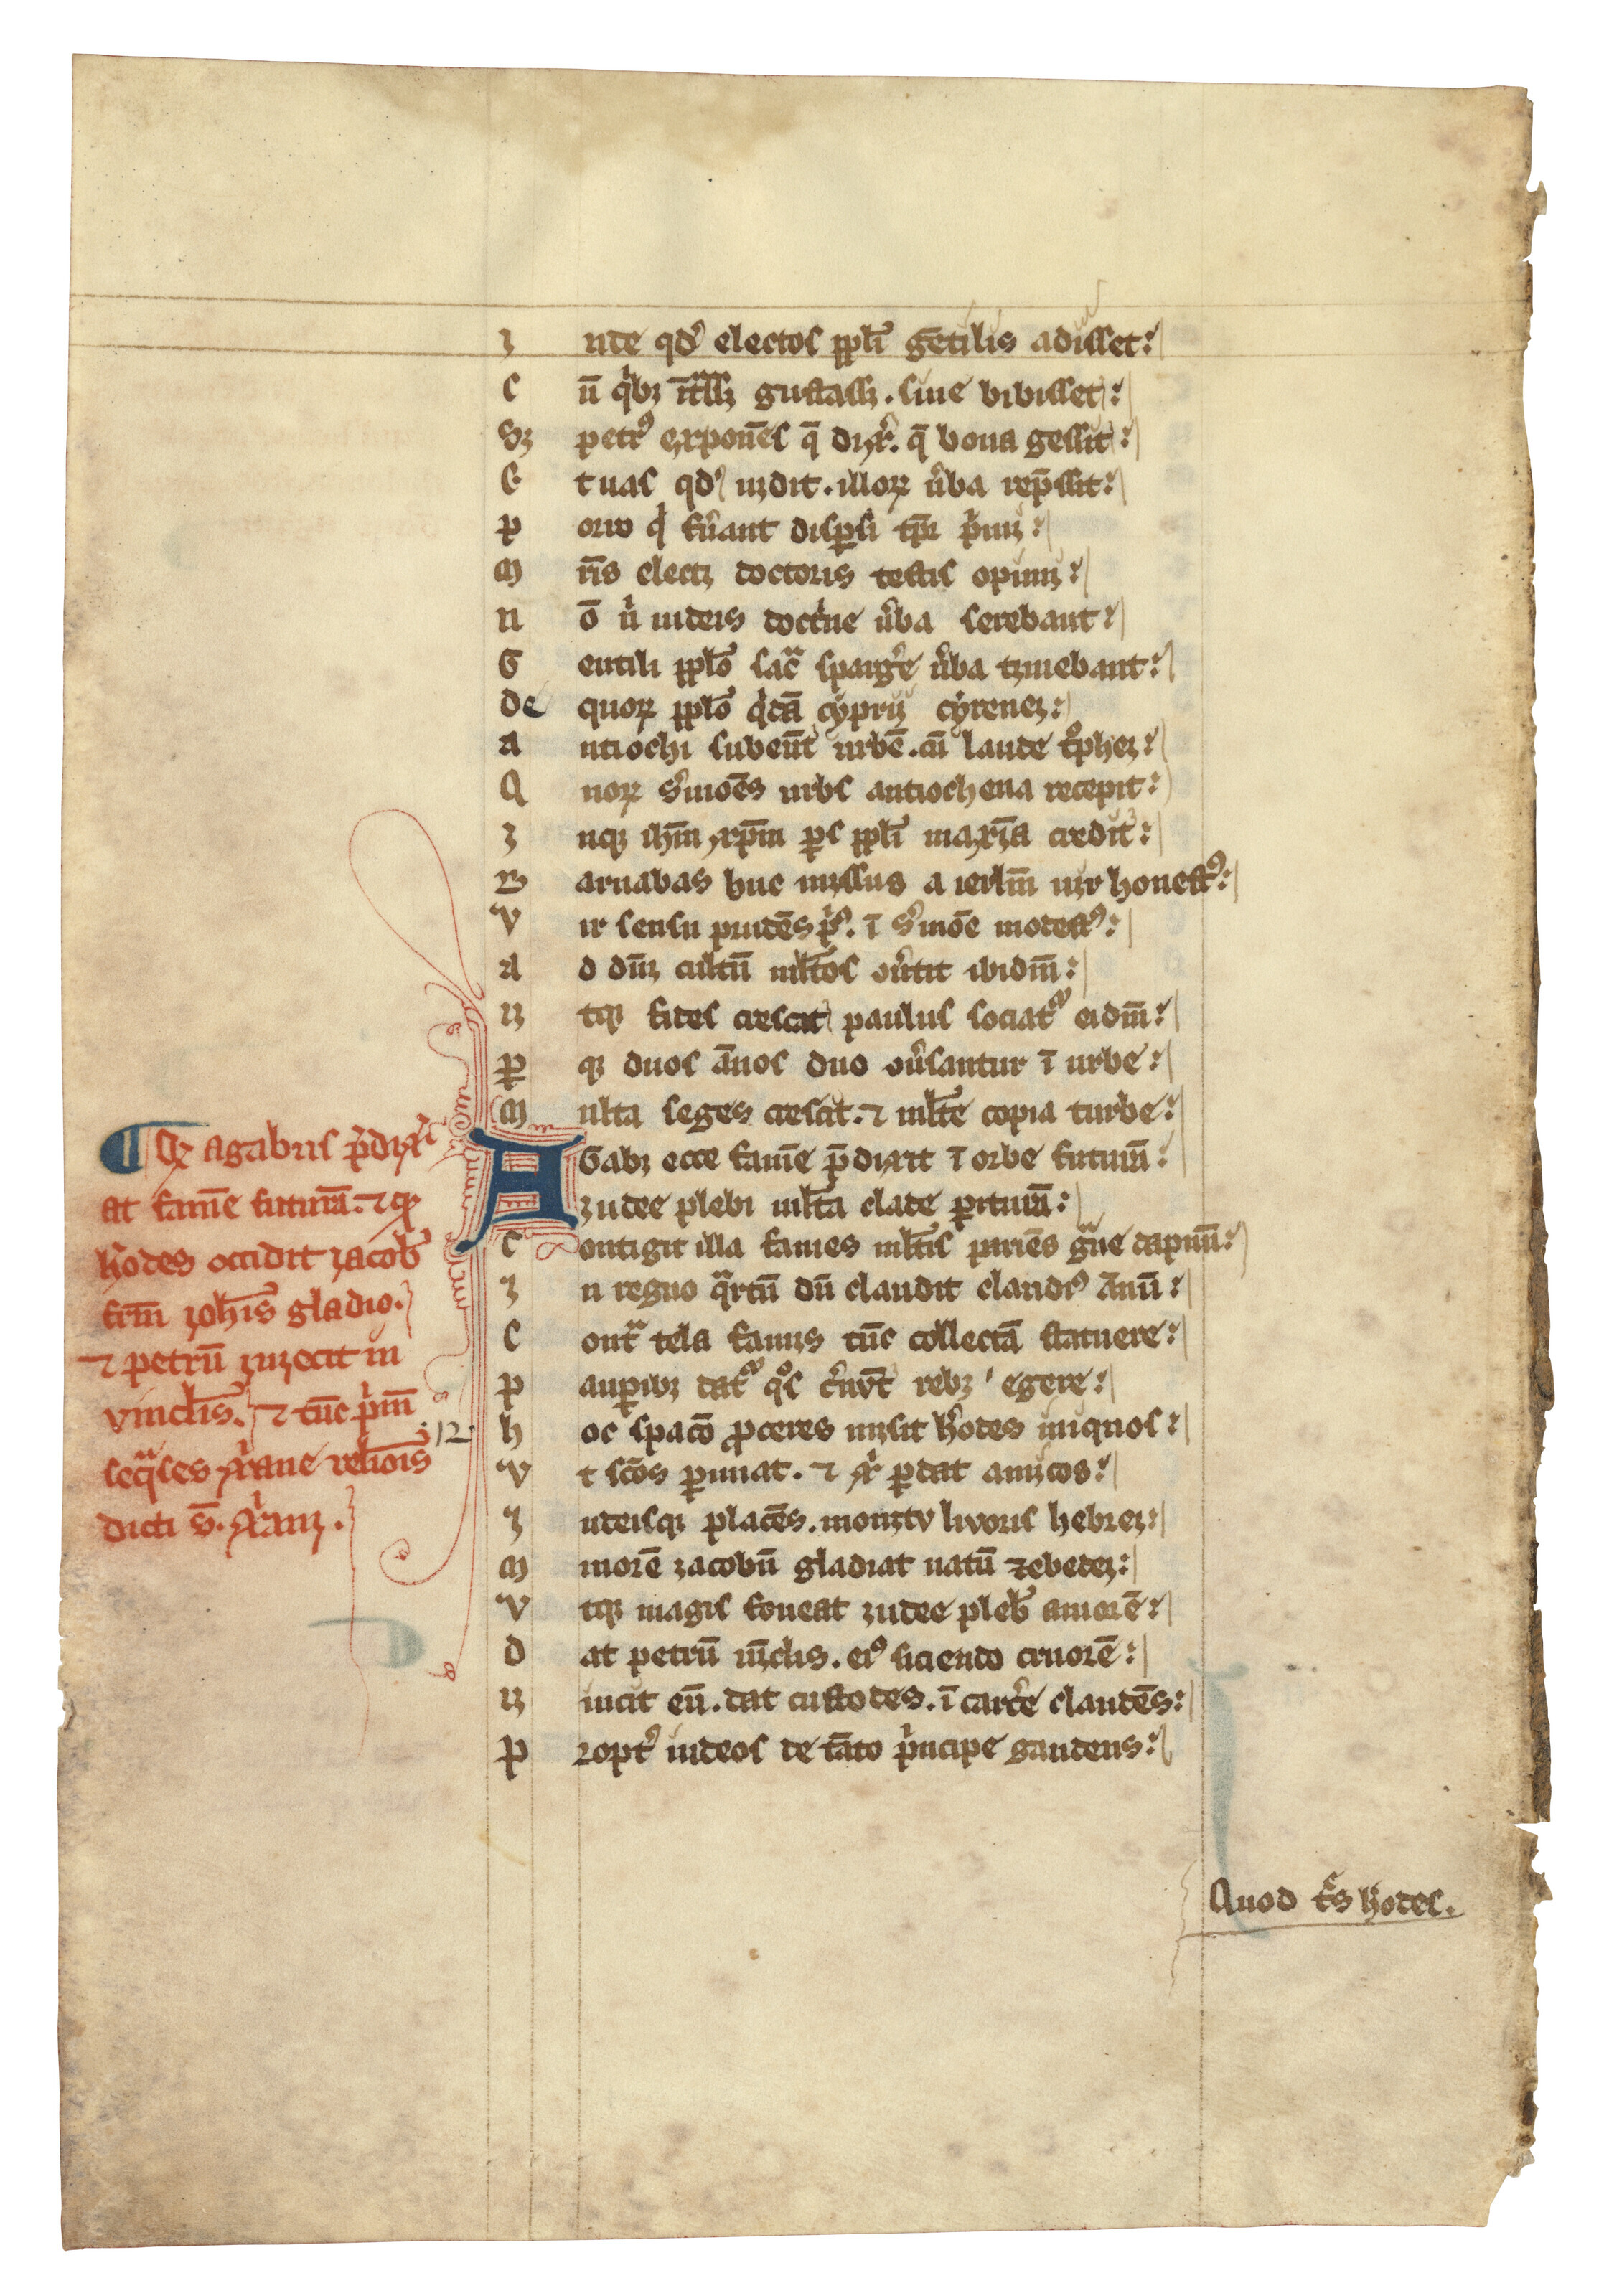 I nde qđ electos ppl̄i gētilis adisset:
C ū q̇bꝫ īt̄llꝫ gustassꝫ. siue bibisset:
Sꝫ petrꝰ exponēs q̄ dix̄. q̄ bona gessit:
E t uas qđ uidit. illoꝝ ūba rep̄ssit:
P orro q̇ fūant disp̱si tp̄r p̄mi:
M r̄is electi doctoris testis opimi:
N ō n̄ iudeis docṫne ūba serebant:
G entili pplō sac̄ sparḡe ūba timebant:
De quoꝝ pplō q̇dā cyprij cyrenei:
A ntiochi subeūt urbē. cū laude tͦphei:
Q uoꝝ s̄moēs urbs antiochena recepit:
I nqꝫ ih̄m xp̄m p̱s ppl̄i maxīa credit:
B arnabas huc missus a ierl̄m uir honestꝰ:
V ir sensu prudēs p̄ꝰ. ī s̄moē modestꝰ:
A d dn̄i cultū ml̄tos ꝯūtit ibidm̄:
U tqꝫ fides crescat paulus sociat᷑ eidm̄:
P̱ qꝫ duos ānos duo ꝯūsantur ī urbe:
M ulta seges crescit. ⁊ ml̄te copia turbe:
A Gabꝫ ecce famē p̄dixit ī orbe futurā:
Iudee plebi ml̄tā clade p̱iturā:
C ontigit illa fames ml̄tis pariēs gͣue dapnū:
I n regno qͣrtū dū claudit claudiꝰ Annū:
C ontͣ tela famis tūc collectā statuere:
P aup̱ibꝫ dat᷑ qͦs c̄nūt rebꝫ egere:
H oc spacō ꝓceres misit h̄odes iniquos:
V t sc̄os p̱imat. ⁊ xͥ p̱dat amicos:
I udeisqꝫ placēs. monitv livoris hebrei:
M inorē iacobū gladiat natū zebedei:
V tqꝫ magis foueat iudee pleb̄ amorē:
D at petrū uīclis. eiꝰ siciendo cruorē:
U incit eū. dat custodes. ī carc̄e claudēs:
P ropt̄ iudeos de tāto ṗncipe gaudens:
¶ Qꝫ agabus p̄dixͥ
at famē futurā. ⁊ qꝫ
h̄odes occidit iacob̄
fr̄m ioh̄is gladio.
⁊ petrū iniecit in
vinclis. ⁊ tūc ṗm̄
seqͣces xͥane relīois
dicti s̄. xͥani.
12
Quod t̄s h̄odes.